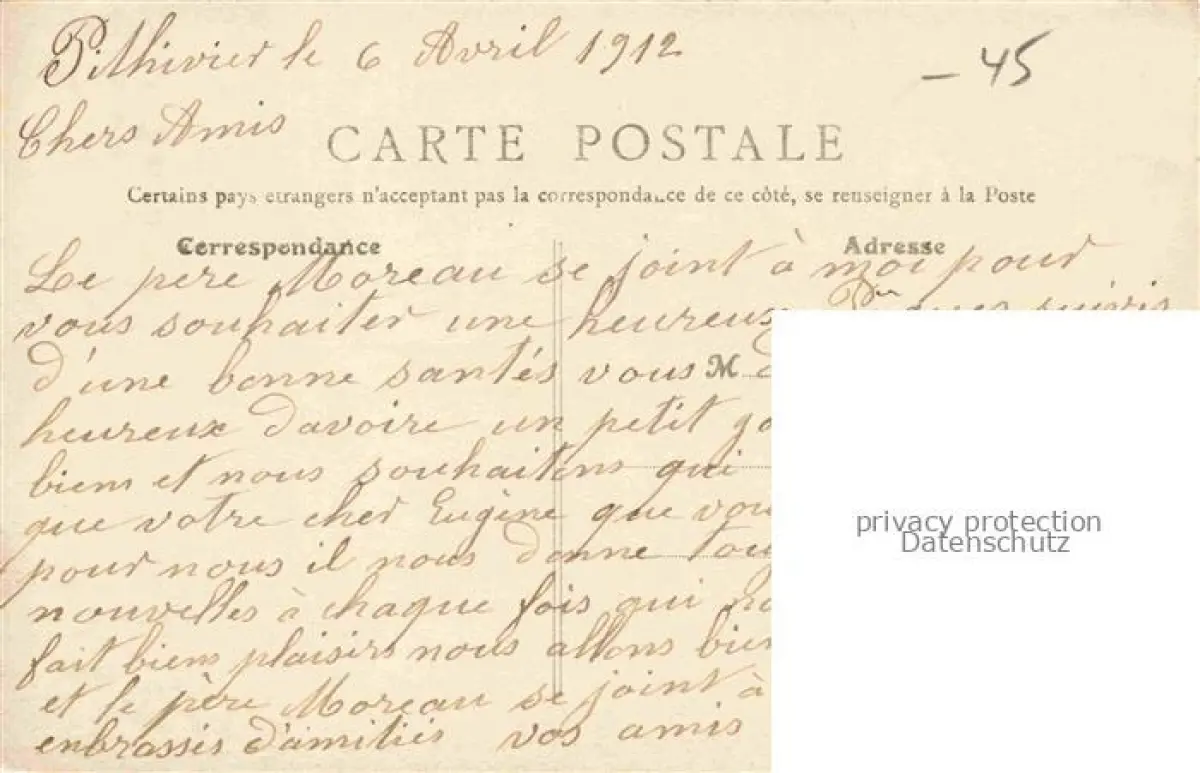 Pithivier le 6 Avril 1912
- 45
Chers Amis
CARTE POSTALE
Certains pays etrangers n'acceptant pas la correspondance de ce côté, se renseigner à la Poste
Correspondance
Adresse
Le pere Moreau se joint à moi pour
vous souhaiter une heureuse suivis
d'une bonne santés vous
M
heureux davoire un petit
bien et nous souhaitons qui
que votre cher Eugène que vous
pour nous il nous donne
nouvelles à chaque fois qui
fait bien plaisirs nous allons bien
et le père Moreau se joint à
enbrassés d'amitiés vos amis
privacy protection
Datenschutz